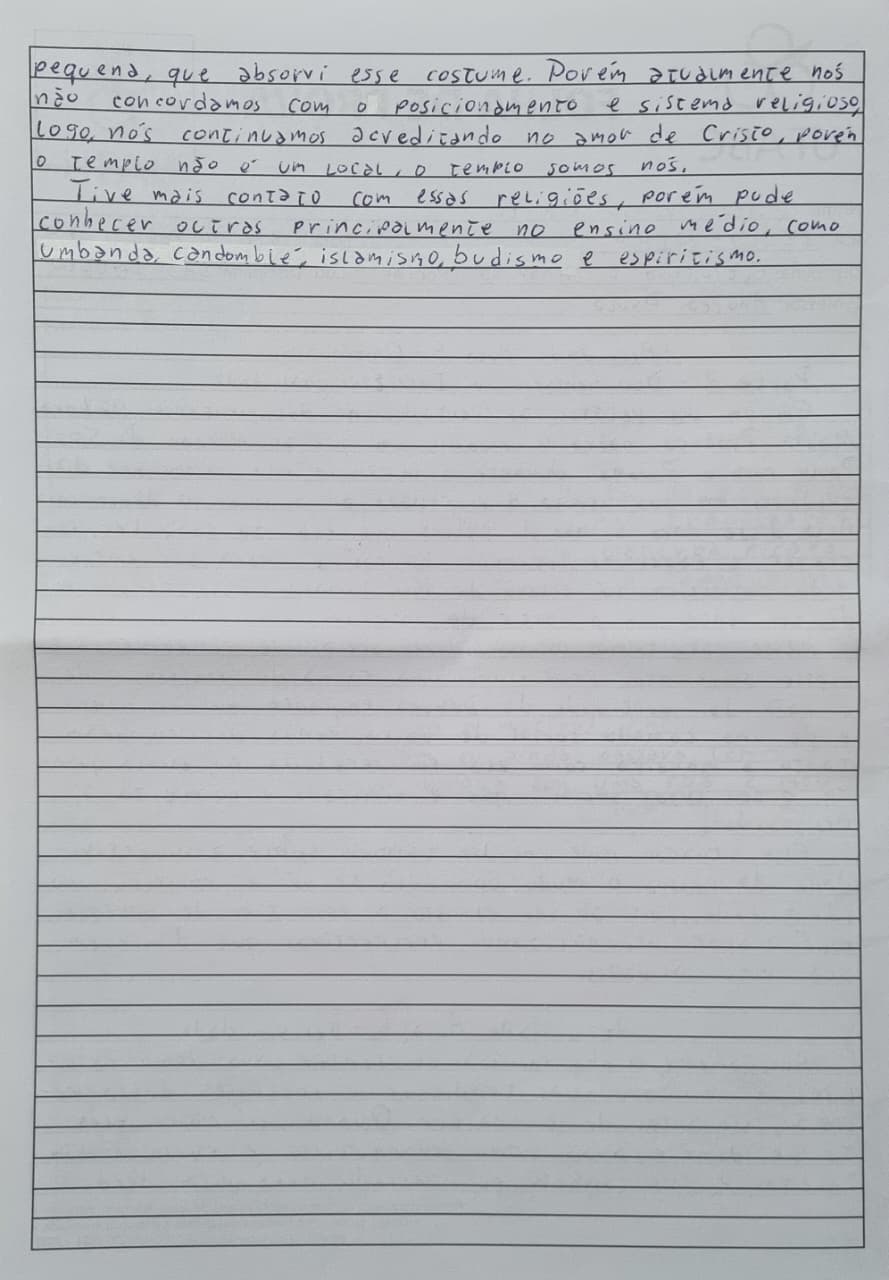 pequena, que absorvi esse costume. Porém atualmente nós
não concordamos com o posicionamento e sistema religioso,
logo, nós continuamos acreditando no amor de Cristo, porén
o templo não é um local, o templo somos nós.
Tive mais contato com essas religiões, porém pude
conhecer outras principalmente no ensino médio, como
umbanda, candomblé, islamismo, budismo e espiritismo.